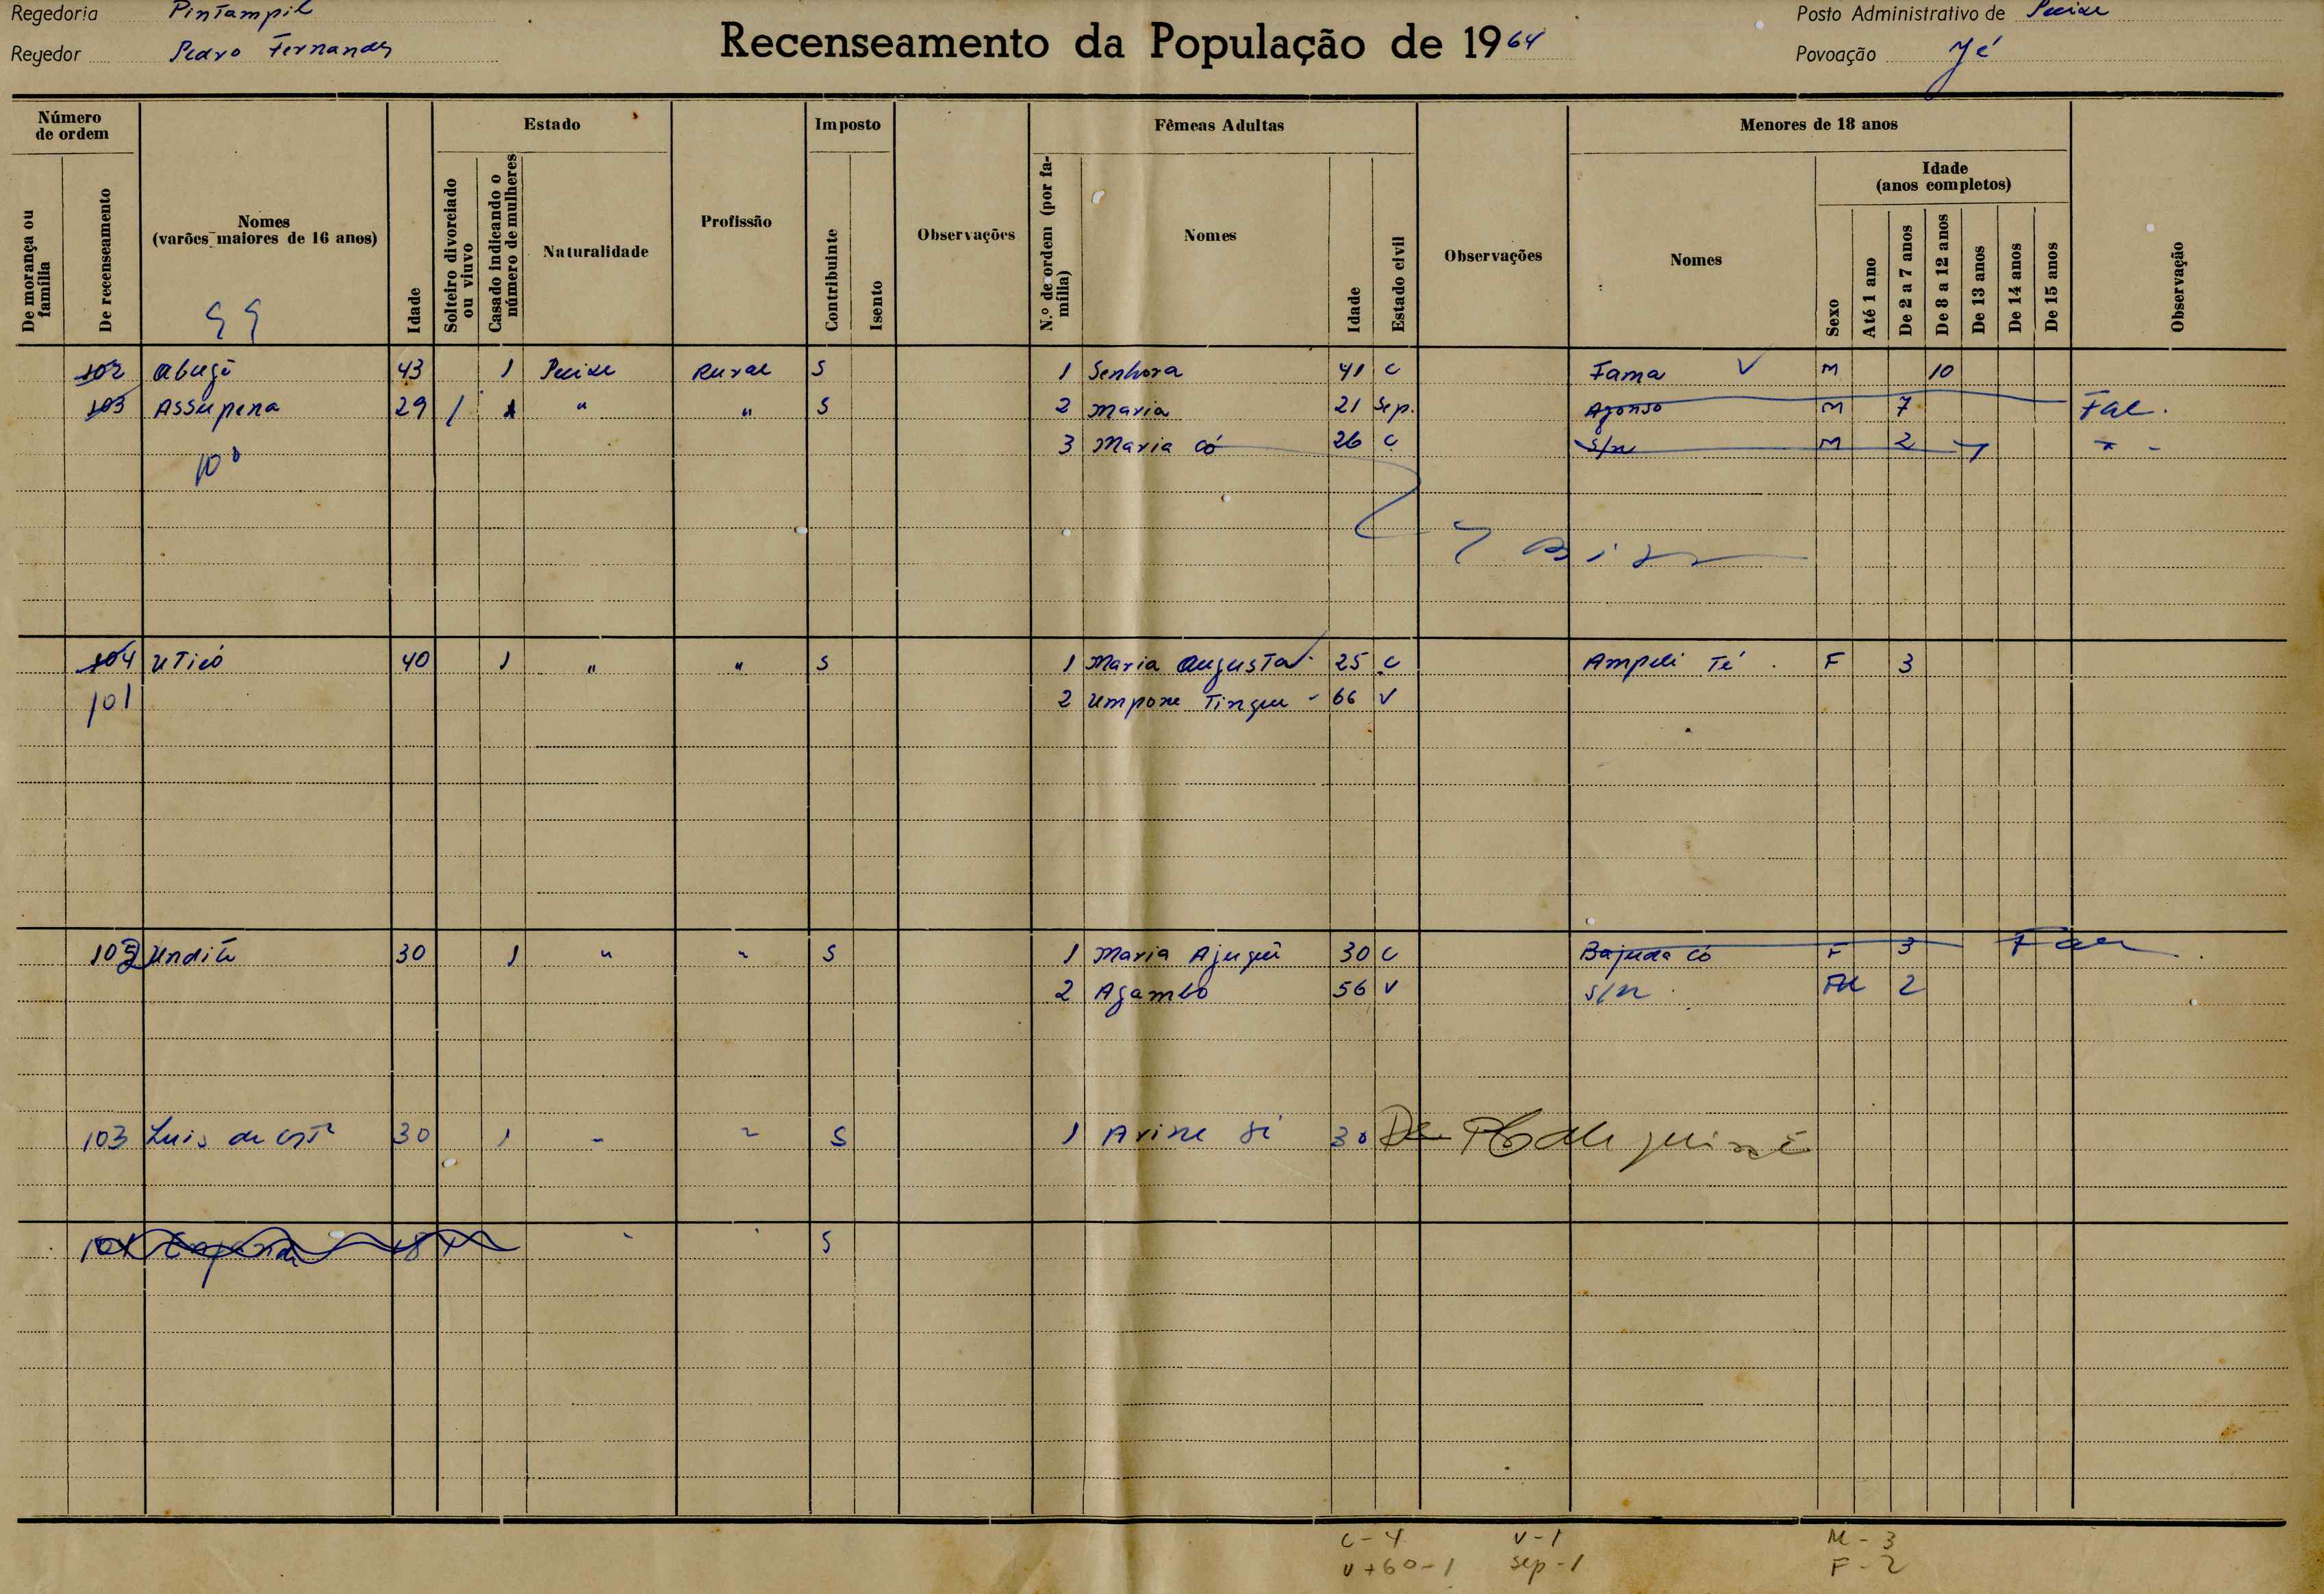 Regedoria Pintampil
Posto Administrativo de Pecixe
Regedor Pedro Fernandes
Recenseamento da População de 1964
Povoação Jé
Número de ordem
Estado
Imposto
Fêmeas Adultas
Menores de 18 anos
De morança ou família
De recenseamento
Nomes (varões maiores de 16 anos)
Idade
Solteiro divorciado ou viuvo
Casado indicando o número de mulheres
Naturalidade
Profissão
Contribuinte
Isento
Observações
N.º de ordem (por família)
Nomes
Idade
Estado civil
Observações
Nomes
Sexo
Idade (anos completos)
Até 1 ano
De 2 a 7 anos
De 8 a 12 anos
De 13 anos
De 14 anos
De 15 anos
Observação
99
102 43 1 Pecixe Rural S 1 Senhora 41 C Fama V M 10
103 Assupena 29 / 1 " " S 2 Maria 21 Sep. M 7 Fal.
100 3 Maria Có 26 C S/n M 2
104 40 1 " " S 1 Maria Augusta 25 C Ampili Té F 3
101 2 Umpone Tingue 66 V
30 1 " " S 1 Maria 30 C Bajuda Có F 3
2 Agambo 56 V S/n 2
103 Luis 30 1 - " S 1 30
S
C - 4 V - 1 M - 3
V + 60 - 1 Sep - 1 F - 2